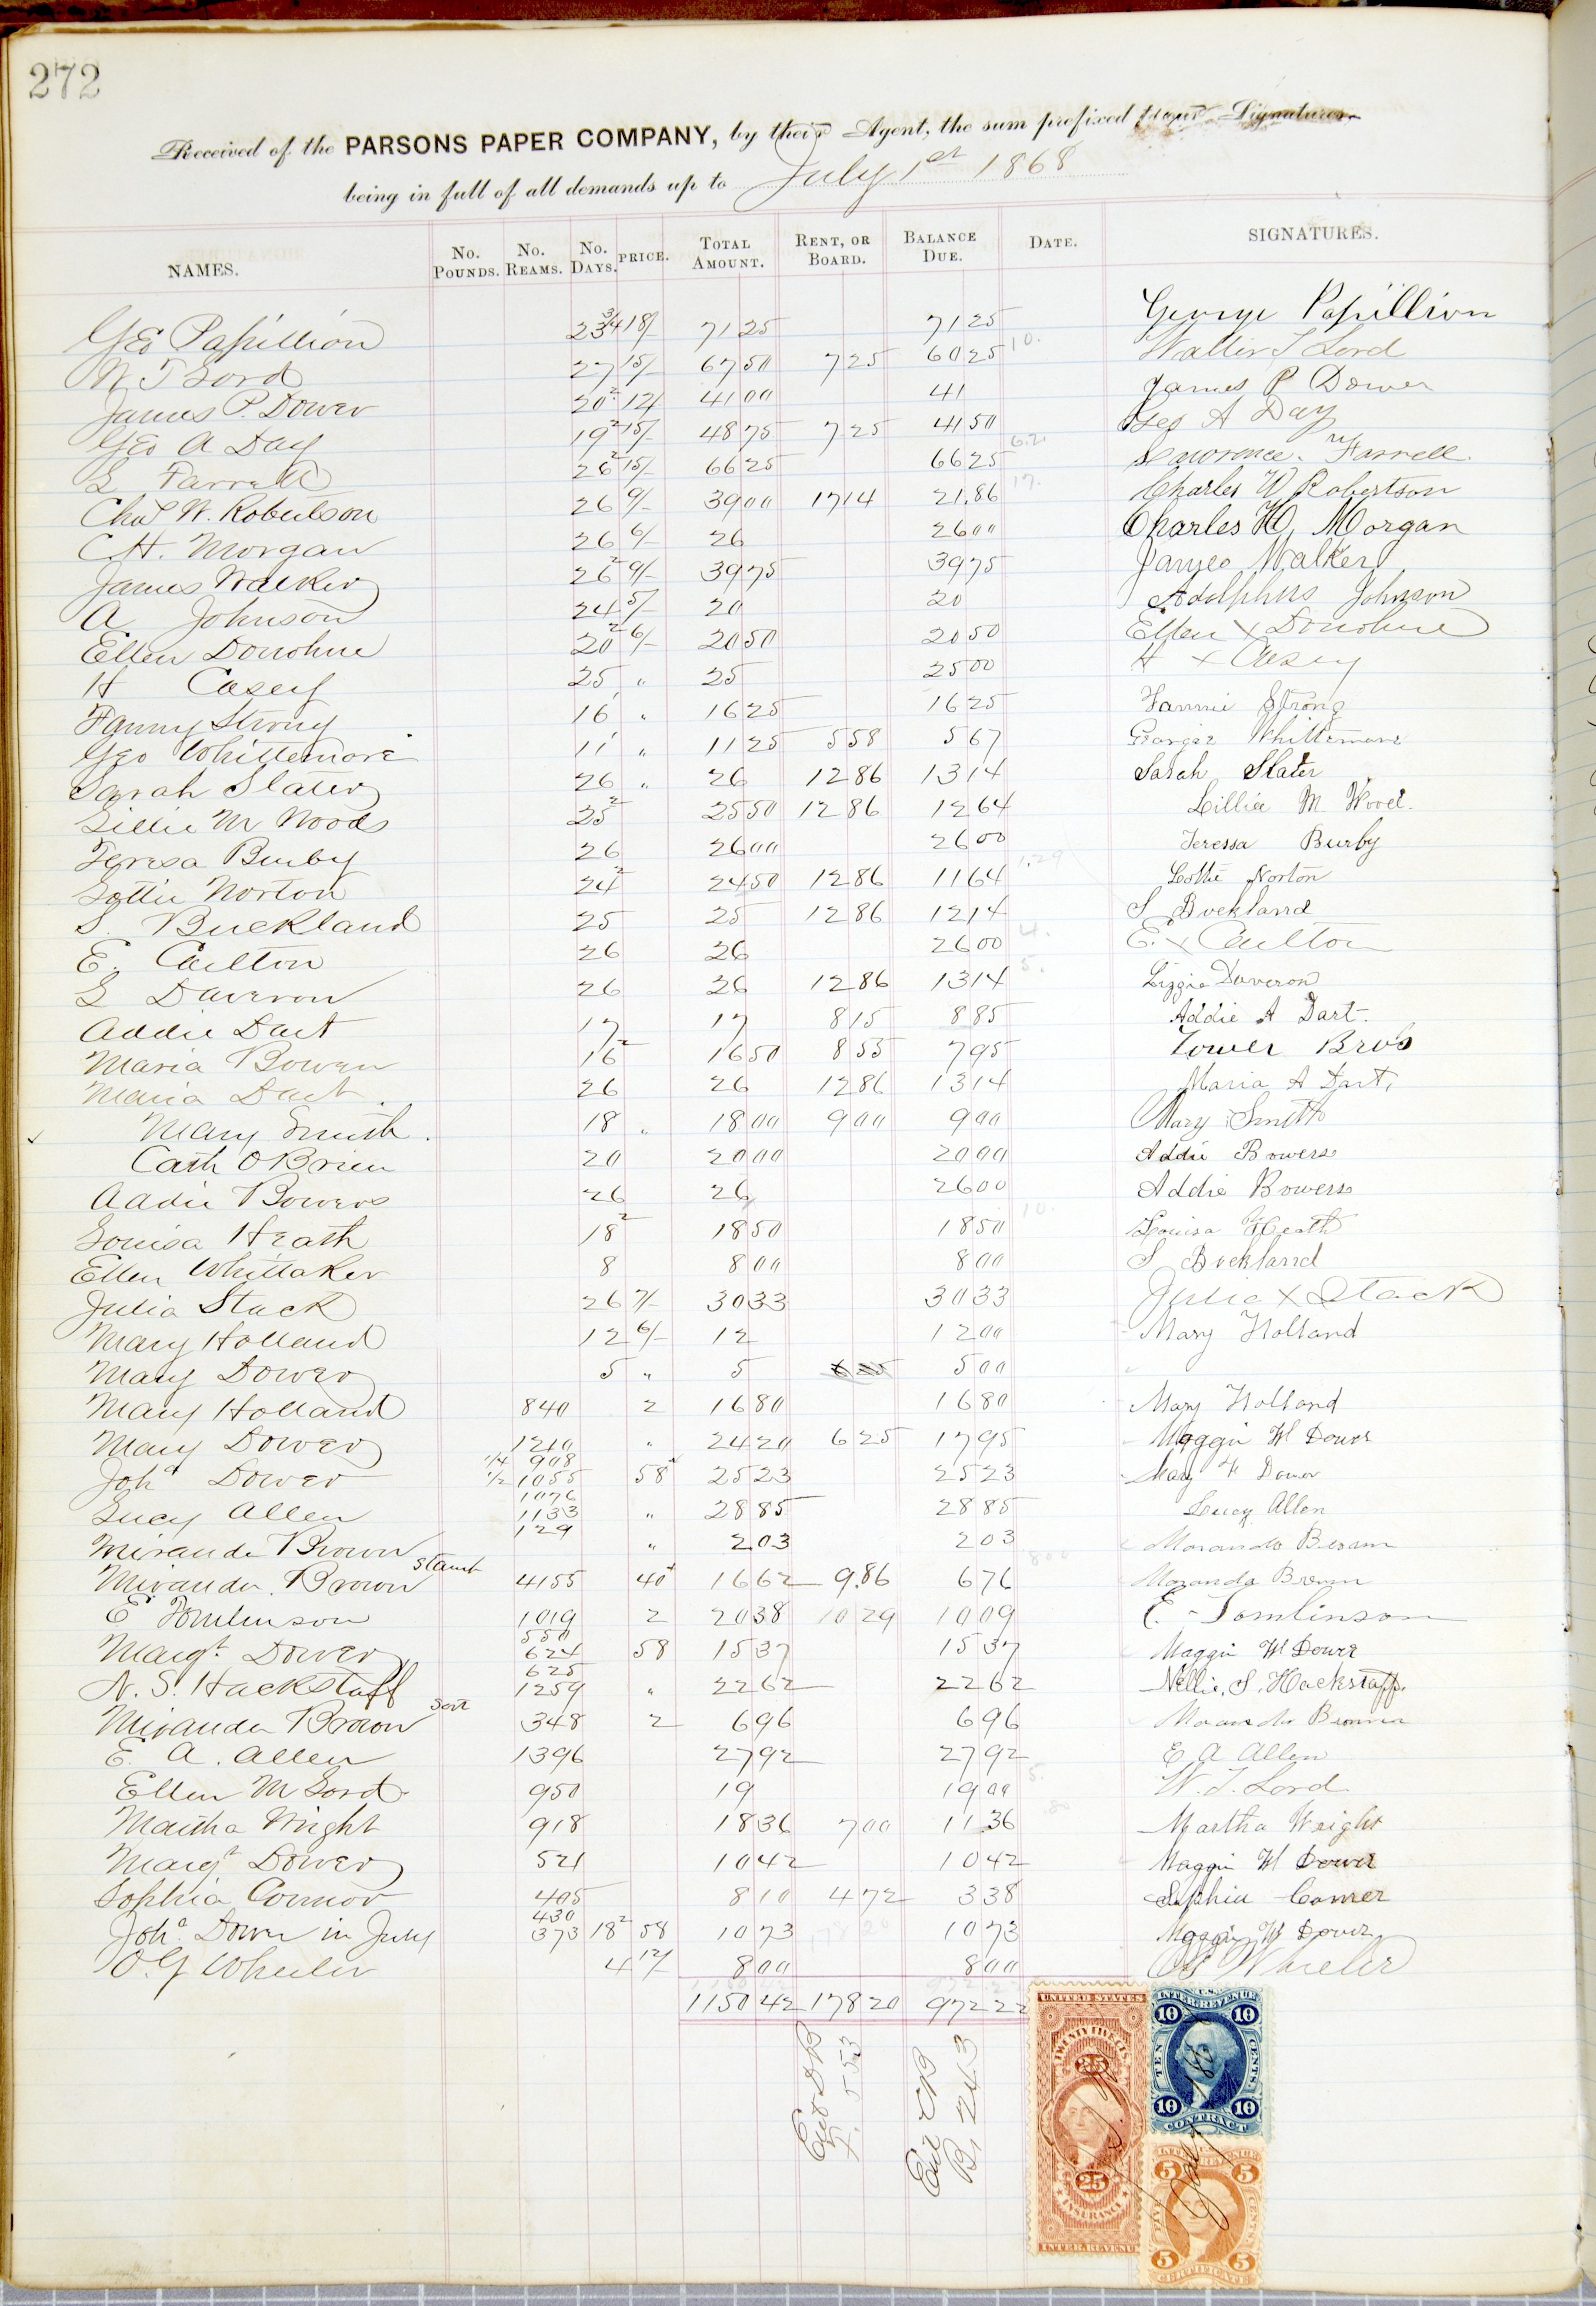 272
Received of the PARSONS PAPER COMPANY, by their Agent, the sum prefixed to our Signatures
being in full of all demands up to July 1st 1868
NAMES. No. Pounds. No. Reams. No. Days. PRICE. Total Amount. Rent, or Board. Balance Due. Date. SIGNATURES.
Geo Papillion 23 3/4 18/- 71 25 71 25 George Papillion
W T Lord 27 15/- 67 50 7 25 60 25 Walter T Lord
James P. Dower 20 2 12/ 41 00 41 James P Dower
Geo A Day 19 2 15/- 48 75 7 25 41 50 Geo A Day
L Farrell 26 2 15/- 66 25 66 25 Lawrence Farrell.
Chas W. Robertson 26 9/- 39 00 17 14 21.86 Charles W Robertson
C.H. Morgan 26 6/- 26 26 00 Charles H Morgan
James Walker 26 2 9/- 39 75 39 75 James Walker
A Johnson 24 5/- 20 20 Adolphus Johnson
Ellen Donohue 20 2 6/- 20 50 20 50 Ellen X Donohue
H Casey 25 " 25 25 00 H X Casey
Fanny Strong 16 " 16 25 16 25 Fannie Strong
Geo Whittemore 11 " 11 25 5 58 5 67 George Whittemore
Sarah Slater 26 " 26 12 86 13 14 Sarah Slater
Lillie M Woods 25 2 25 50 12 86 12 64 Lillie M Wood.
Teresa Burby 26 26 00 26 00 Teressa Burby
Lottie Norton 24 2 24 50 12 86 11 64 Lottie Norton
S. Buckland 25 25 12 86 12 14 S Buckland
E. Carlton 26 26 26 00 E. X Carlton
L Daveron 26 26 12 86 13 14 Lizzie Daveron
Addie Dart 17 17 8 15 8 85 Addie A Dart.
Maria Bowen 16 2 16 50 8 55 7 95 Tower Bro's
Maria Dart. 26 26 12 86 13 14 Maria A Dart.
Mary Smith. 18 " 18 00 9 00 9 00 Mary Smith
Cath O Brien 20 20 00 20 00 Addie Bowers
Addie Bowers 26 26 26 00 Addie Bowers
Louisa Heath 18 2 18 50 18 50 Louisa Heath
Ellen Whittaker 8 8 00 8 00 S Buckland
Julia Stack 26 7/- 30 33 30 33 Julia X Stack
Mary Holland 12 6/- 12 12 00 Mary Holland
Mary Dower 5 " 5 5 00
Mary Holland 840 2 16 80 16 80 Mary Holland
Mary Dower 1210 " 24 20 6 25 17 95 Maggie W Dower
1/4 908
Joha Dower 1/2 1055 58 25 23 25 23 Mary F Dower
1076
Lucy Allen 1133 " 28 85 28 85 Lucy Allen
129
Miranda Brown " 2 03 2 03 Moranda Brown
Miranda Brown stamp 4155 40 16 62 9.86 6 76 Moranda Brown
E Tomlinson 1019 2 20 38 10 29 10 09 E. Tomlinson
550
Margt. Dower 624 58 15 37 15 37 Maggie W Dower
625
N. S. Hackstaff 1259 " 22 62 22 62 Nellie. S. Hackstaff.
Miranda Brown sort 348 2 6 96 6 96 Moranda Brown
E. A. Allen 1396 27 92 27 92 E A Allen
Ellen M Lord 950 19 19 00 W. T. Lord
Martha Wright 918 18 36 7 00 11 36 Martha Wright
Margt Dower 521 10 42 10 42 Maggie W Dower
Sophia Connor 405 8 10 4 72 3 38 Sophia Conner
430
Joha. Dower in July 373 18 2 58 10 73 10 73 Maggie W Dower
O. G Wheeler 4 12/ 8 00 8 00 OG Wheeler
1150 42 178 20 972 22
553
B, 243
UNITED STATES
TWENTY FIVE CTS
25
25
INSURANCE
INTER. REVENUE
U.S.
INTER. REVENUE
10 10
TEN CENTS
10 10
CONTRACT
INTER. REVENUE
5 5
FIVE CENTS
5 5
CERTIFICATE